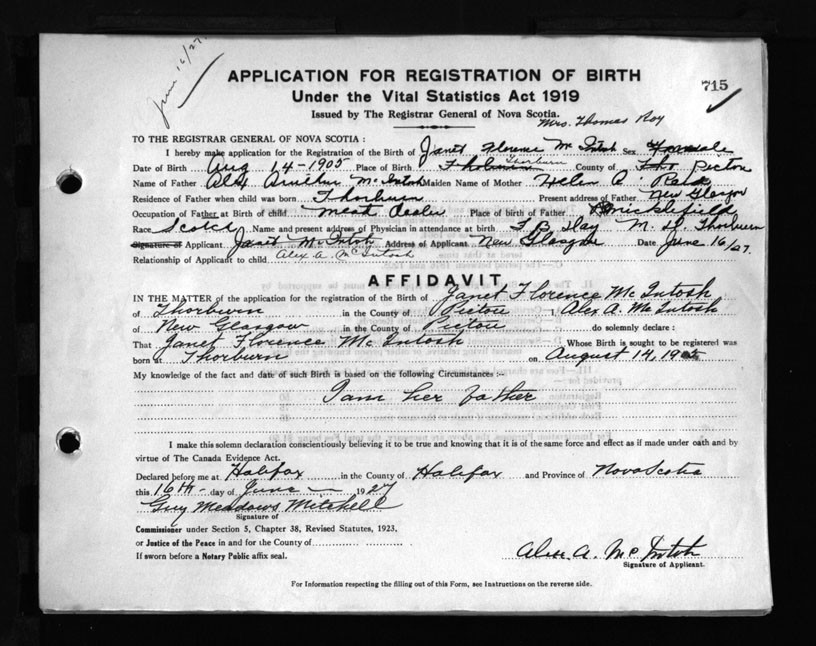 June 16/27
APPLICATION FOR REGISTRATION OF BIRTH
715
Under the Vital Statistics Act 1919
Issued by The Registrar General of Nova Scotia.
Mrs. Thomas Roy
TO THE REGISTRAR GENERAL OF NOVA SCOTIA :
I hereby make application for the Registration of the Birth of Janet Florence McIntosh Sex Female
Thorburn
Date of Birth Aug 14-1905 Place of Birth County of Pictou
Name of Father Alex Arthur McIntosh Maiden Name of Mother Helen A. Reid
New Glasgow
Residence of Father when child was born Thorburn Present address of Father
Occupation of Father at Birth of child meat dealer Place of birth of Father
Race Scotch Name and present address of Physician in attendance at birth M. D. Thorburn
Signature of Applicant Janet McIntosh Address of Applicant New Glasgow Date June 16/27.
Relationship of Applicant to child Alex A. McIntosh
AFFIDAVIT
IN THE MATTER of the application for the registration of the Birth of Janet Florence McIntosh
of Thorburn in the County of Pictou I Alex. A. McIntosh
of New Glasgow in the County of Pictou do solemnly declare :
That Janet Florence McIntosh Whose Birth is sought to be registered was
born at Thorburn on August 14, 1905
My knowledge of the fact and date of such Birth is based on the following Circumstances :-
I am her father
I make this solemn declaration conscientiously believing it to be true and knowing that it is of the same force and effect as if made under oath and by
virtue of The Canada Evidence Act.
Declared before me at Halifax in the County of Halifax and Province of Nova Scotia
this 16th day of June 1927
Guy Meadows Mitchell
Signature of
Commissioner under Section 5, Chapter 38, Revised Statutes, 1923,
or Justice of the Peace in and for the County of
If sworn before a Notary Public affix seal.
Alex. A. McIntosh
Signature of Applicant.
For Information respecting the filling out of this Form, see Instructions on the reverse side.